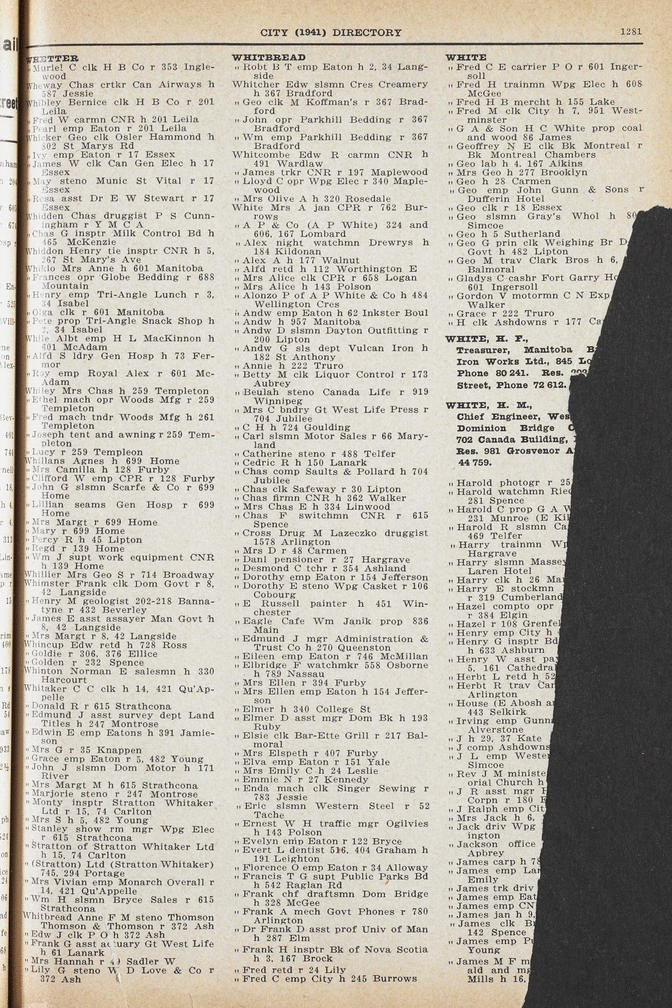 CITY (1941) DIRECTORY
1281
WHETTER
" Muriel C clk H B Co r 353 Ingle-
wood
Wheway Chas crtkr Can Airways h
587 Jessie
Whibley Bernice clk H B Co r 201
Leila
" Fred W carmn CNR h 201 Leila
" Pearl emp Eaton r 201 Leila
Whicker Geo clk Osler Hammond h
802 St Marys Rd
" Ivy emp Eaton r 17 Essex
" James W clk Can Gen Elec h 17
Essex
" May steno Munic St Vital r 17
Essex
" Rosa asst Dr E W Stewart r 17
Essex
Whidden Chas druggist P S Cunn-
ingham r Y M C A
" Chas G insptr Milk Control Bd h
465 McKenzie
Whiddon Henry tie insptr CNR h 5,
267 St Mary's Ave
Whiklo Mrs Anne h 601 Manitoba
" Frances opr Globe Bedding r 688
Mountain
" Henry emp Tri-Angle Lunch r 3,
34 Isabel
" Olga clk r 601 Manitoba
" Pete prop Tri-Angle Snack Shop h
3, 34 Isabel
While Albt emp H L MacKinnon h
401 McAdam
" Alfd S ldry Gen Hosp h 73 Fer-
mor
" Roy emp Royal Alex r 401 Mc-
Adam
Whiley Mrs Chas h 259 Templeton
" Ethel mach opr Woods Mfg r 259
Templeton
" Fred mach tndr Woods Mfg h 261
Templeton
" Joseph tent and awning r 259 Tem-
pleton
" Lucy r 259 Templeon
Whillans Agnes h 699 Home
" Mrs Camilla h 128 Furby
" Clifford W emp CPR r 128 Furby
" John G slsmn Scarfe & Co r 699
Home
" Lillian seams Gen Hosp r 699
Home
" Mrs Margt r 699 Home
" Mary r 699 Home
" Percy R h 45 Lipton
" Regd r 139 Home
" Wm J supt work equipment CNR
h 139 Home
Whillier Mrs Geo S r 714 Broadway
Whimster Frank clk Dom Govt r 8,
42 Langside
" Henry M geologist 202-218 Banna-
tyne r 432 Beverley
" James E asst assayer Man Govt h
8, 42 Langside
" Mrs Margt r 8, 42 Langside
Whincup Edw retd h 728 Ross
" Goldie r 306, 376 Ellice
" Golden r 232 Spence
Whinton Norman E salesmn h 330
Harcourt
Whitaker C C clk h 14, 421 Qu'Ap-
pelle
" Donald R r 615 Strathcona
" Edmund J asst survey dept Land
Titles h 247 Montrose
" Edwin E emp Eatons h 391 Jamie-
son
" Mrs G r 35 Knappen
" Grace emp Eaton r 5, 482 Young
" John J slsmn Dom Motor h 171
River
" Mrs Margt M h 615 Strathcona
" Marjorie steno r 247 Montrose
" Monty insptr Stratton Whitaker
Ltd r 15, 74 Carlton
" Mrs S h 5, 482 Young
" Stanley show rm mgr Wpg Elec
r 615 Strathcona
" Stratton of Stratton Whitaker Ltd
h 15, 74 Carlton
" (Stratton) Ltd (Stratton Whitaker)
745, 294 Portage
" Mrs Vivian emp Monarch Overall r
14, 421 Qu'Appelle
" Wm H slsmn Bryce Sales r 615
Strathcona
Whitbread Anne F M steno Thomson
Thomson & Thomson r 372 Ash
" Edw J clk P O h 372 Ash
" Frank G asst actuary Gt West Life
h 61 Lanark
" Mrs Hannah r Sadler W
" Lily G steno W D Love & Co r
372 Ash
WHITBREAD
" Robt B T emp Eaton h 2, 34 Lang-
side
Whitcher Edw slsmn Cres Creamery
h 367 Bradford
" Geo clk M Koffman's r 367 Brad-
ford
" John opr Parkhill Bedding r 367
Bradford
" Wm emp Parkhill Bedding r 367
Bradford
Whitcombe Edw R carmn CNR h
491 Wardlaw
" James trkr CNR r 197 Maplewood
" Lloyd C opr Wpg Elec r 340 Maple-
wood
" Mrs Olive A h 320 Rosedale
White Mrs A jan CPR r 762 Bur-
rows
" A P & Co (A P White) 324 and
606, 167 Lombard
" Alex night watchmn Drewrys h
184 Kildonan
" Alex A h 177 Walnut
" Alfd retd h 112 Worthington E
" Mrs Alice clk CPR r 658 Logan
" Mrs Alice h 143 Polson
" Alonzo P of A P White & Co h 484
Wellington Cres
" Andw emp Eaton h 62 Inkster Boul
" Andw h 957 Manitoba
" Andw D slsmn Dayton Outfitting r
200 Lipton
" Andw G sls dept Vulcan Iron h
182 St Anthony
" Annie h 222 Truro
" Betty M clk Liquor Control r 173
Aubrey
" Beulah steno Canada Life r 919
Winnipeg
" Mrs C bndry Gt West Life Press r
704 Jubilee
" C H h 724 Goulding
" Carl slsmn Motor Sales r 66 Mary-
land
" Catherine steno r 488 Telfer
" Cedric R h 150 Lanark
" Chas comp Saults & Pollard h 704
Jubilee
" Chas clk Safeway r 30 Lipton
" Chas firmn CNR h 362 Walker
" Mrs Chas E h 334 Linwood
" Chas F switchmn CNR r 615
Spence
" Cross Drug M Lazeczko druggist
1578 Arlington
" Mrs D r 48 Carmen
" Danl pensioner r 27 Hargrave
" Desmond C tchr r 354 Ashland
" Dorothy emp Eaton r 154 Jefferson
" Dorothy E steno Wpg Casket r 106
Cobourg
" E Russell painter h 451 Win-
chester
" Eagle Cafe Wm Janik prop 836
Main
" Edmund J mgr Administration &
Trust Co h 270 Queenston
" Eileen emp Eaton r 746 McMillan
" Elbridge F watchmkr 558 Osborne
h 789 Nassau
" Mrs Ellen r 394 Furby
" Mrs Ellen emp Eaton h 154 Jeffer-
son
" Elmer h 340 College St
" Elmer D asst mgr Dom Bk h 193
Ruby
" Elsie clk Bar-Ette Grill r 217 Bal-
moral
" Mrs Elspeth r 407 Furby
" Elva emp Eaton r 151 Yale
" Mrs Emily C h 24 Leslie
" Emmie N r 27 Kennedy
" Enda mach clk Singer Sewing r
783 Jessie
" Eric slsmn Western Steel r 52
Tache
" Ernest W H traffic mgr Ogilvies
h 143 Polson
" Evelyn emp Eaton r 122 Bryce
" Evert L dentist 516, 404 Graham h
191 Leighton
" Florence O emp Eaton r 34 Alloway
" Francis T G supt Public Parks Bd
h 542 Raglan Rd
" Frank chf draftsmn Dom Bridge
h 328 McGee
" Frank A mech Govt Phones r 780
Arlington
" Dr Frank D asst prof Univ of Man
h 287 Elm
" Frank H insptr Bk of Nova Scotia
h 3, 167 Brock
" Fred retd r 24 Lily
" Fred C emp City h 245 Burrows
WHITE
" Fred C E carrier P O r 601 Inger-
soll
" Fred H trainmn Wpg Elec h 608
McGee
" Fred H B mercht h 155 Lake
" Fred M clk City h 7, 951 West-
minster
" G A & Son H C White prop coal
and wood 86 James
" Geoffrey N E clk Bk Montreal r
Bk Montreal Chambers
" Geo lab h 4, 167 Alkins
" Mrs Geo h 277 Brooklyn
" Geo h 28 Carmen
" Geo emp John Gunn & Sons r
Dufferin Hotel
" Geo clk r 18 Essex
" Geo slsmn Gray's Whol h
Simcoe
" Geo h 5 Sutherland
" Geo G prin clk Weighing Br
Govt h 482 Lipton
" Geo M trav Clark Bros h 6,
Balmoral
" Gladys C cashr Fort Garry
601 Ingersoll
" Gordon V motormn C N
Walker
" Grace r 222 Truro
" H clk Ashdowns r 177
WHITE, H. F.,
Treasurer, Manitoba
Iron Works Ltd., 845
Phone 80 241. Res.
Street, Phone 72 612.
WHITE, H. M.,
Chief Engineer,
Dominion Bridge
702 Canada Building,
Res. 981 Grosvenor
44 759.
" Harold photogr r
" Harold watchmn
281 Spence
" Harold C prop G A
231 Munroe (E
" Harold R slsmn
469 Telfer
" Harry trainmn
Hargrave
" Harry slsmn
Laren Hotel
" Harry clk h 26
" Harry E stockmn
r 319 Cumberland
" Hazel compto opr
r 384 Elgin
" Hazel r 108
" Henry emp City h
" Henry G insptr
h 633 Ashburn
" Henry W asst
5, 161 Cathedral
" Herbt L retd h
" Herbt R trav
Arlington
" House (E Abosh
443 Selkirk
" Irving emp
Alverstone
" J h 29, 37 Kate
" J comp Ashdowns
" J L emp
Simcoe
" Rev J M
orial Church h
" J R asst mgr
Corpn r 180
" J Ralph emp
" Mrs Jack h 6,
" Jack driv
ington
" Jackson
Apbrey
" James carp h
" James emp
Emily
" James trk
" James emp
" James emp
" James jan h
" James clk
142 Spence
" James emp
Young
" James M F
ald and
Mills h 16,